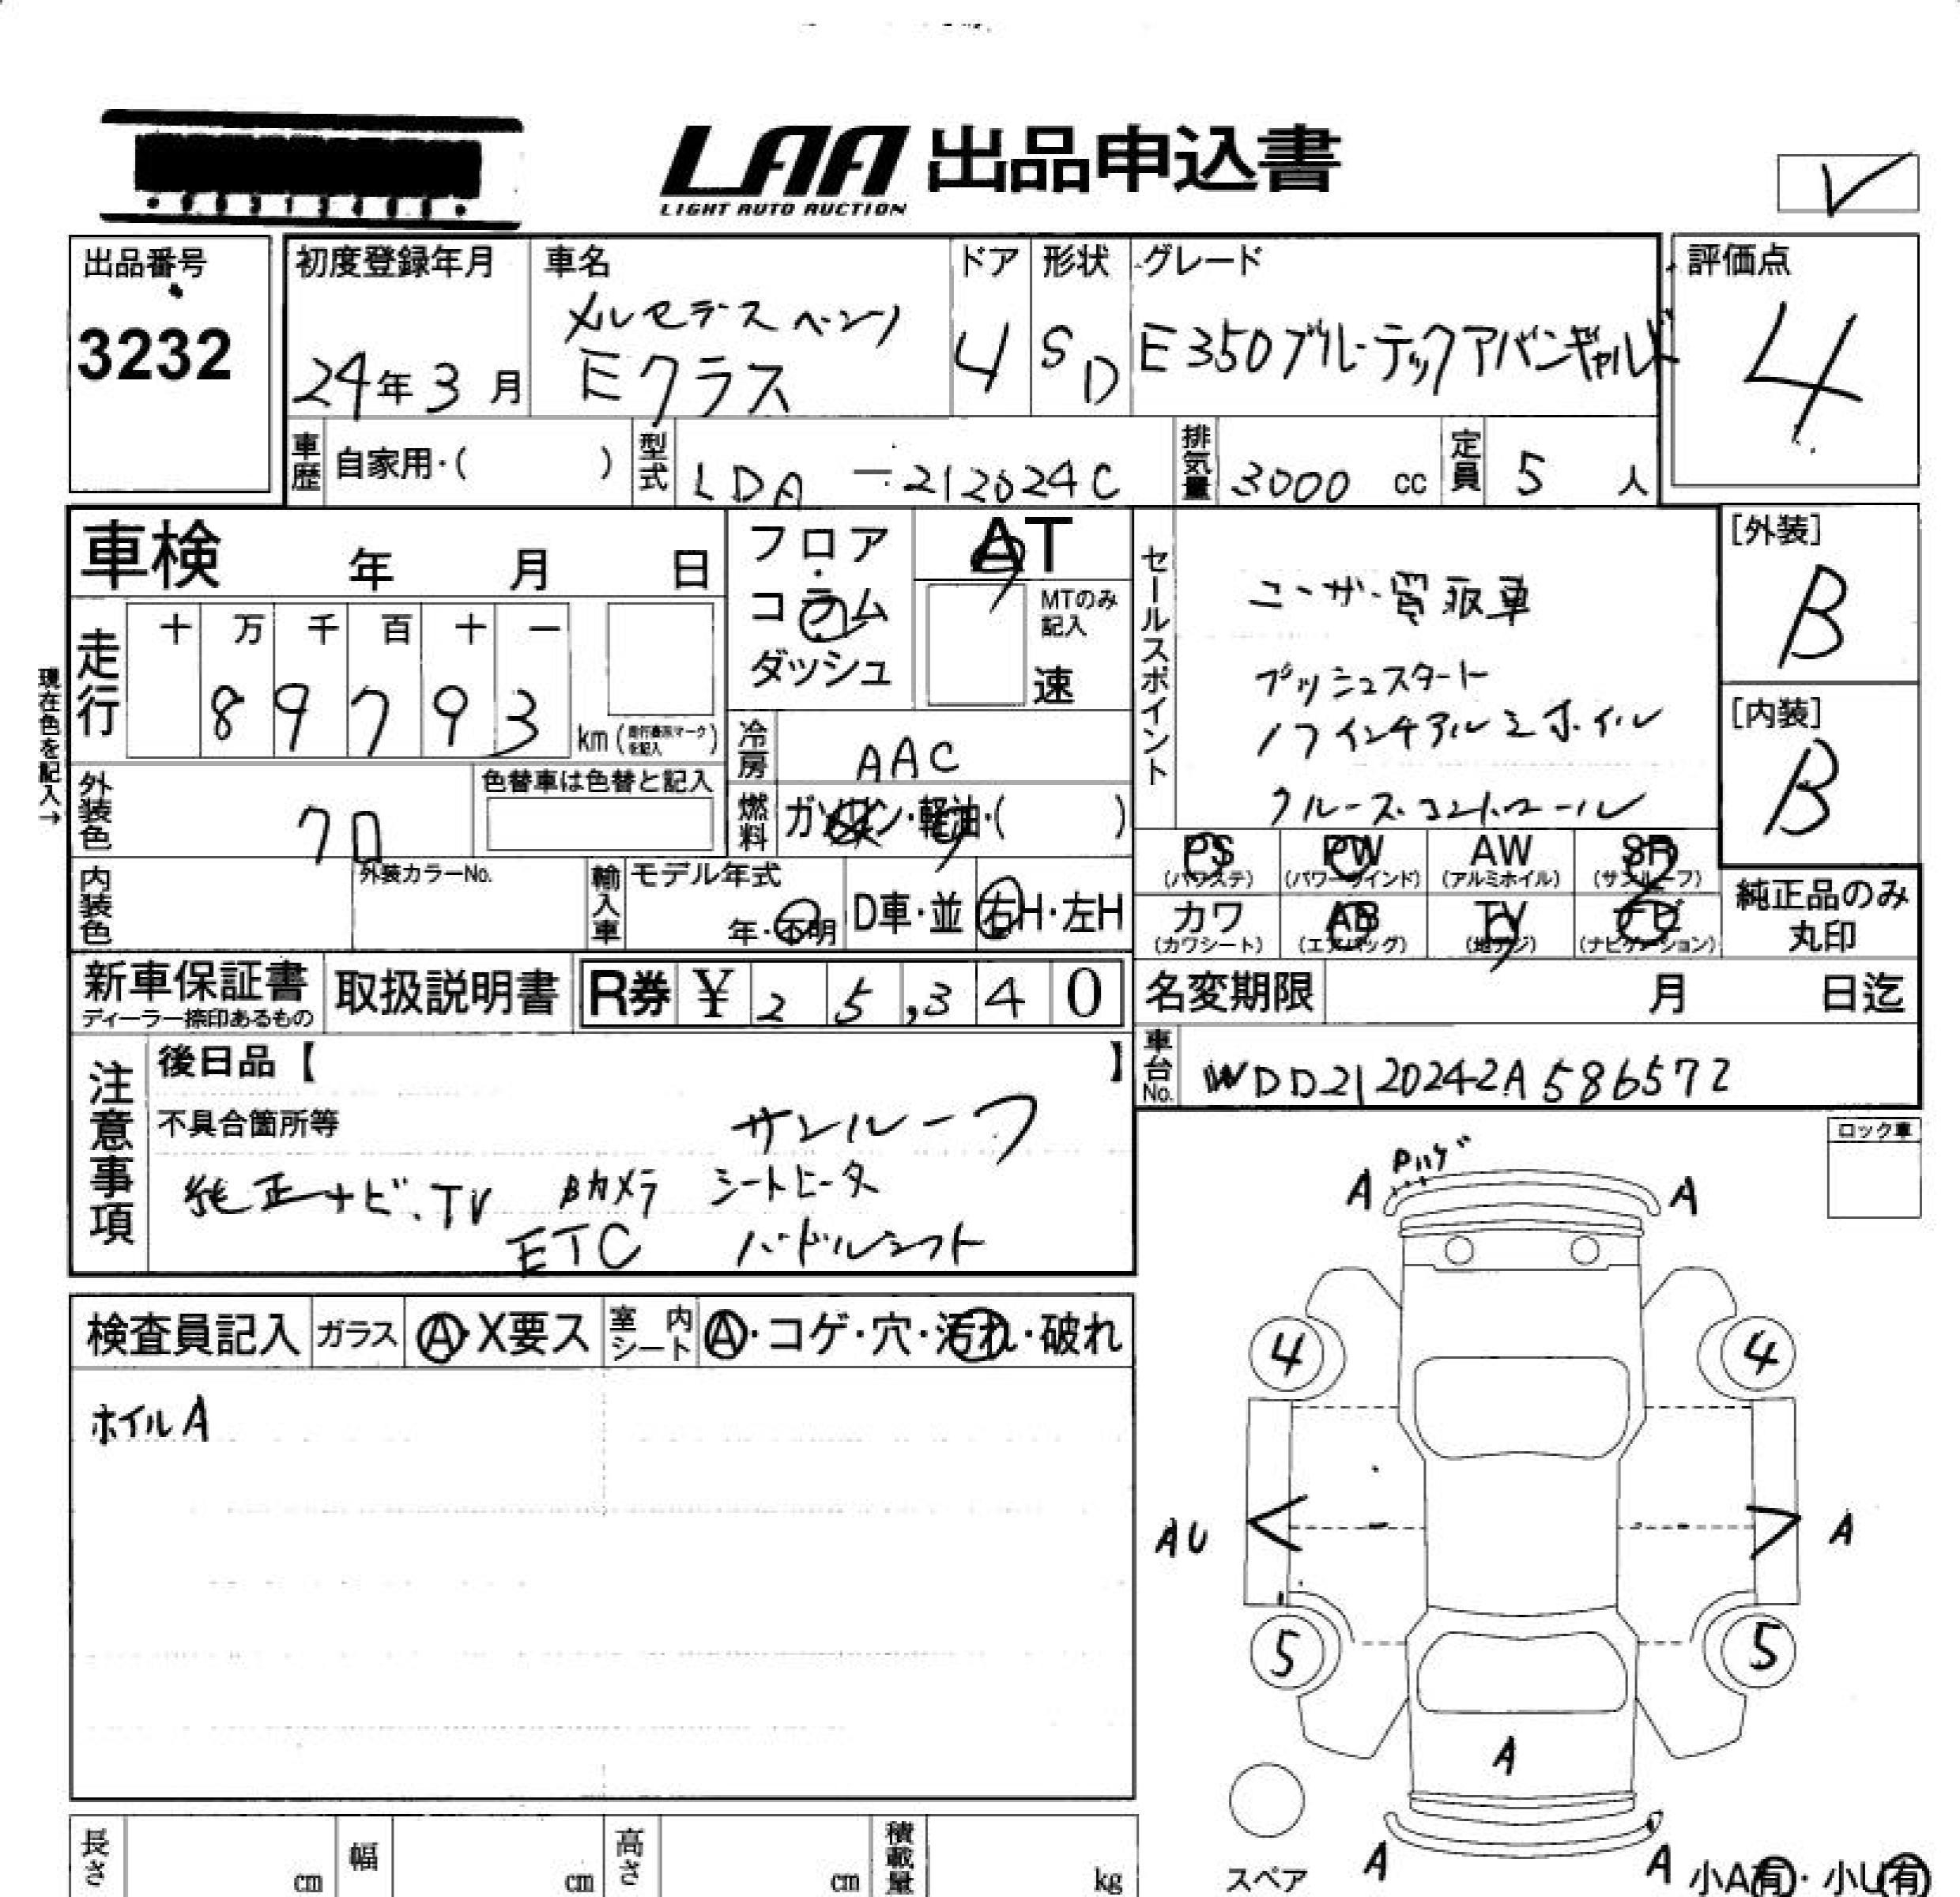 LAA 出品申込書
LIGHT AUTO AUCTION
出品番号
3232
初度登録年月
24年3月
車名
メルセデスベンツ
Eクラス
ドア
4
形状
SD
グレード
E350ブルーテックアバンギャルド
評価点
4
車歴 自家用・( )
型式 LDA-212024C
排気量 3000 cc
定員 5 人
車検 年 月 日
フロア・コラム・ダッシュ
AT
MTのみ記入
速
現在色を記入→
走行
十 万 千 百 十 一
8 9 7 9 3
km(走行表示マークを記入)
冷房 AAC
燃料 ガソリン・軽油・( )
外装色 クロ
色替車は色替と記入
内装色
外装カラーNo.
輸入車
モデル年式
年・不明
D車・並
右H・左H
セールスポイント
ユーザー買取車
プッシュスタート
17インチアルミホイル
クルーズコントロール
[外装]
B
[内装]
B
PS (パワステ)
PW (パワーウインド)
AW (アルミホイル)
SR (サンルーフ)
カワ (カワシート)
AB (エアバッグ)
TV (地デジ)
ナビ (ナビゲーション)
純正品のみ丸印
新車保証書
ディーラー捺印あるもの
取扱説明書
R券 ¥ 2 5,3 4 0
名変期限 月 日迄
車台No. WDD2120242A586572
注意事項
後日品【 】
不具合箇所等
サンルーフ
純正ナビ.TV Bカメラ シートヒータ
ETC パドルシフト
ロック車
検査員記入
ガラス A・X要ス
室内シート A・コゲ・穴・汚れ・破れ
ホイルA
A Pハゲ A
4 4
AU A
5 5
A
A A
スペア
小A有・小U有
長さ cm
幅 cm
高さ cm
積載量 kg